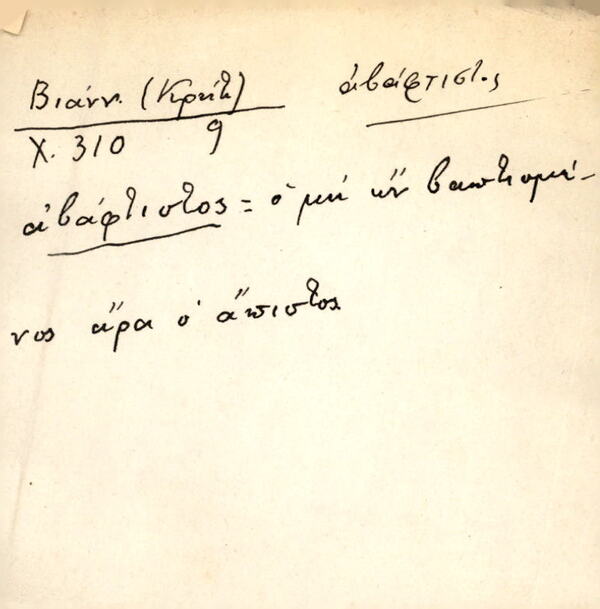 Βιάνν. (Κρήτ) ἀβάφτιστος
Χ. 310 9
ἀβάφτιστος = ὁ μή ὤν βαπτισμέ-
νος ἄρα ὁ ἄπιστος